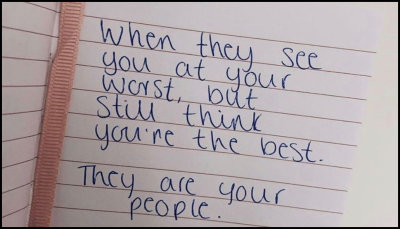 When they see
you at your
worst, but
still think
you're the best.
They are your
people.